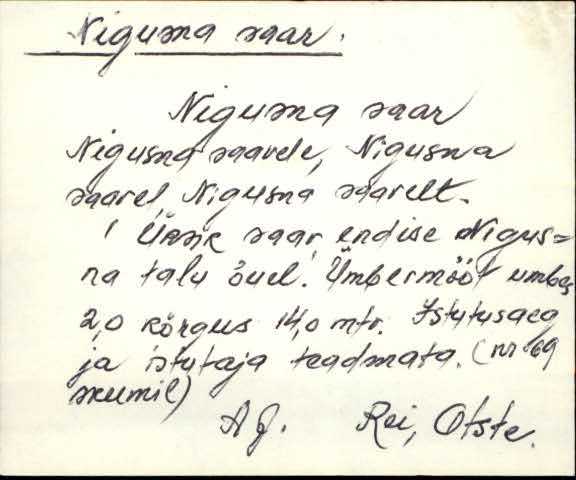 Nigusna saar.
Nigusna saar
Nigusna saarele, Nigusna
saarel, Nigusna saarelt.
Üksik saar, endise Nigus=
na talu õuel. Ümbermõõt umbes
2,0 kõrgus 14,0 mtr. Istutusaeg
ja istutaja teadmata. (nr 69
skeemil)
A J. Rei, Otste.